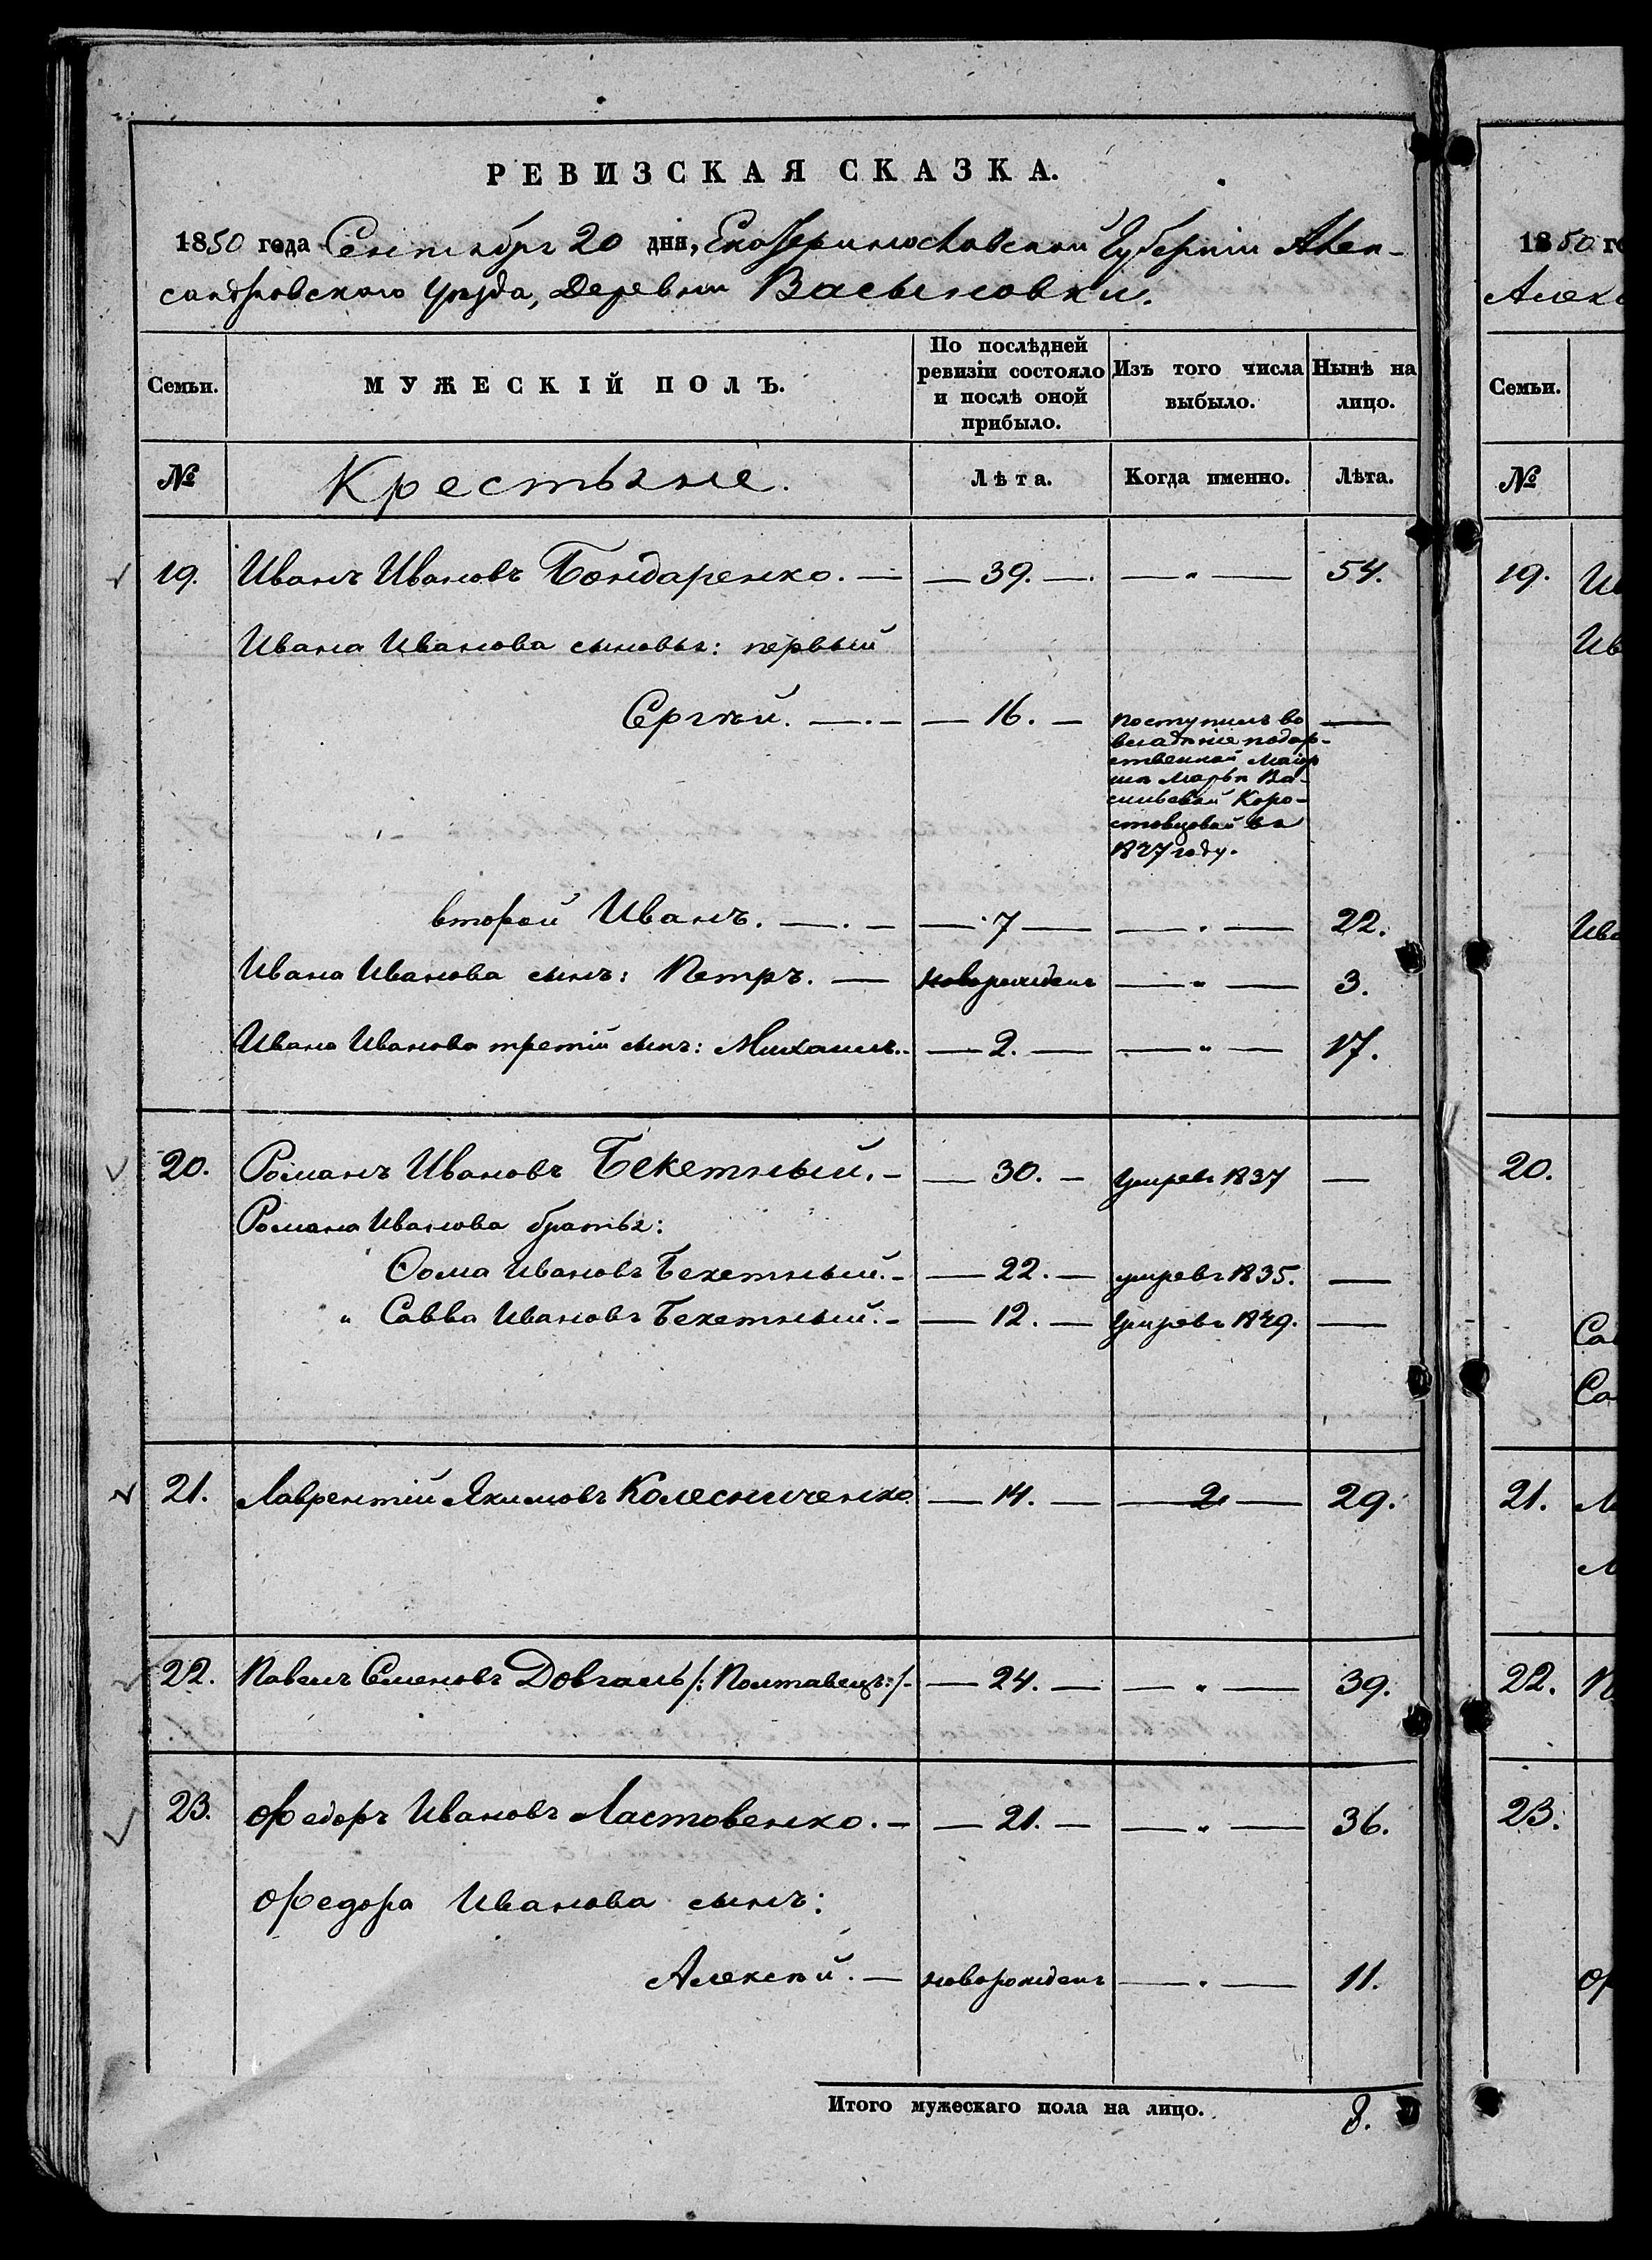 РЕВИЗСКАЯ СКАЗКА.
1850 года Сентября 20 дня, Екатеринославской Губерніи Алек-
сандровскаго Уезда, Деревни Васыновки.
Семьи.
МУЖЕСКІЙ ПОЛЪ.
По послѣдней ревизіи состояло и послѣ оной прибыло.
Изъ того числа выбыло.
Нынѣ на лицо.
№
Крестьяне.
Лѣта.
Когда именно.
Лѣта.
19. Иванъ Ивановъ Бондаренко. — — 39. — — „ — 54.
Ивана Иванова сыновья: первый
Сергѣй. — — 16. —
поступилъ во
владѣніе подар-
ственной Маіор
ши Марьи Ва-
сильевой Коро-
стовцовой въ
1847 году.
второй Иванъ. — — 7 — — „ — 22.
Ивана Иванова сынъ: Петръ. — новорожденъ — „ — 3.
Ивана Иванова третій сынъ: Михаилъ. — 2. — — „ — 17.
20. Романъ Ивановъ Бекетный. — — 30. — умеръ 1837 —
Романа Иванова братья:
Ѳома Ивановъ Бекетный. — — 22. — умеръ 1835. —
„ Савва Ивановъ Бекетный. — — 12. — умеръ 1849. —
21. Лаврентій Якимовъ Колесниченко — 14. — — „ — 29.
22. Павелъ Семеновъ Довгаль /: Полтавецъ :/. — 24. — — „ — 39.
23. Федоръ Ивановъ Ластовенко. — — 21. — — „ — 36.
Федора Иванова сынъ:
Алексѣй. — новорожденъ — „ — 11.
Итого мужескаго пола на лицо. 8.
1850 го
Алекс
Семьи.
№
19. Ив
Ив
Ива
20.
Сав
Са
21. Л
Л
22. П
23.
Ф